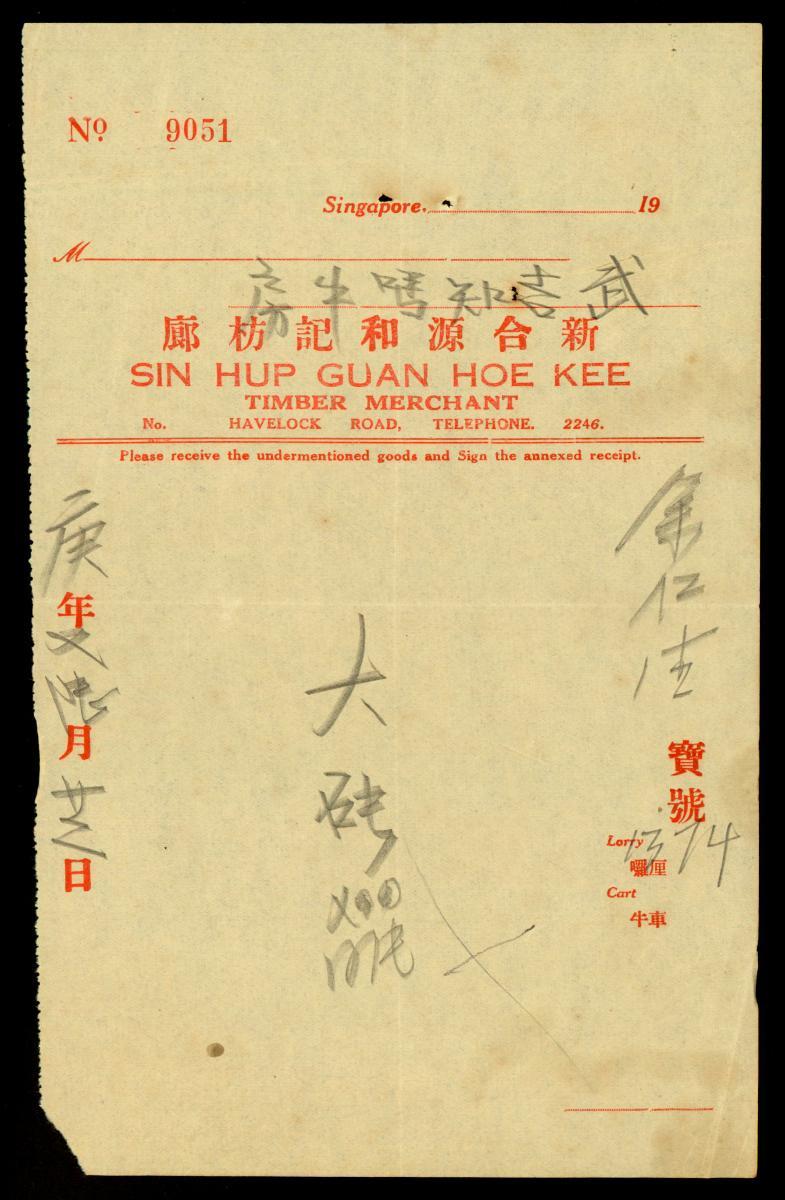 Nº 9051
Singapore. 19
M
武吉知嗎牛房
新合源和記枋廊
SIN HUP GUAN HOE KEE
TIMBER MERCHANT
No. HAVELOCK ROAD, TELEPHONE. 2246.
Please receive the undermentioned goods and Sign the annexed receipt.
余仁生 寶號
Lorry 1374
囉厘
Cart
牛車
大磚
庚年 月 日